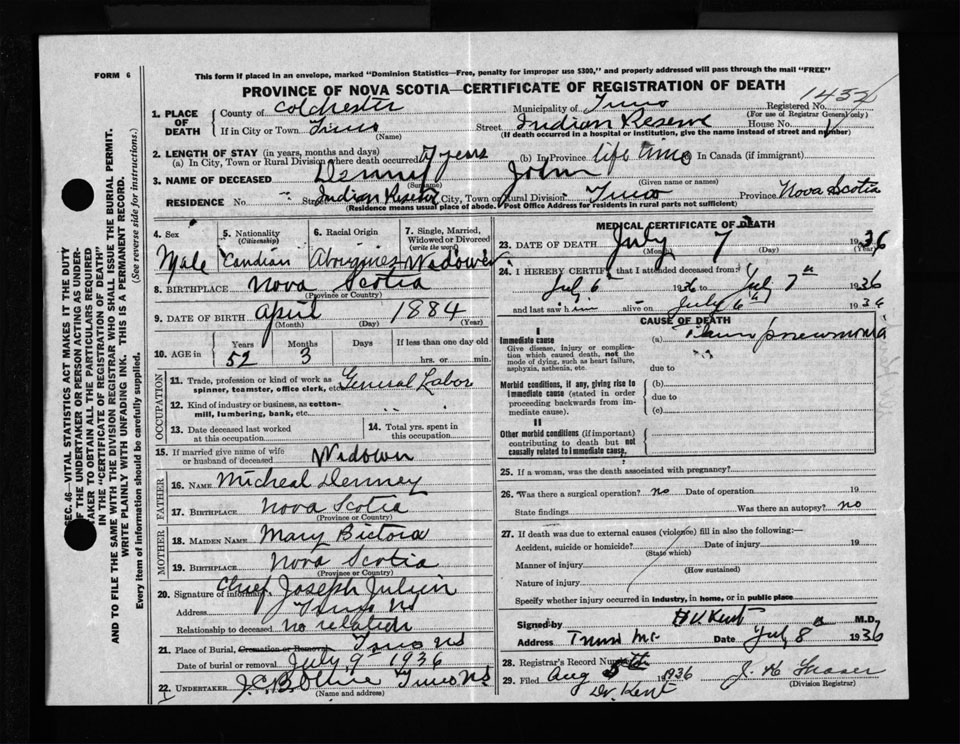 FORM 6
This form if placed in an envelope, marked "Dominion Statistics—Free, penalty for improper use $300," and properly addressed will pass through the mail "FREE"
PROVINCE OF NOVA SCOTIA—CERTIFICATE OF REGISTRATION OF DEATH
1437
1. PLACE OF DEATH
County of Colchester Municipality of Truro Registered No.
(For use of Registrar General only)
If in City or Town Truro Street Indian Reserve House No.
(Name) (If death occurred in a hospital or institution, give the name instead of street and number)
2. LENGTH OF STAY (in years, months and days)
(a) In City, Town or Rural Division where death occurred 7 years (b) In Province life time In Canada (if immigrant)
3. NAME OF DECEASED Denney John
(Surname) (Given name or names)
RESIDENCE No. Street Indian Reserve City, Town or Rural Division Truro Province Nova Scotia
(Residence means usual place of abode. Post Office Address for residents in rural parts not sufficient)
4. Sex Male
5. Nationality (Citizenship) Candian
6. Racial Origin Aborigines
7. Single, Married, Widowed or Divorced (write the word) Widower
8. BIRTHPLACE Nova Scotia
(Province or Country)
9. DATE OF BIRTH April 1884
(Month) (Day) (Year)
10. AGE in Years Months Days If less than one day old
52 3 hrs. or min.
OCCUPATION
11. Trade, profession or kind of work as spinner, teamster, office clerk, etc. General Labor
12. Kind of industry or business, as cotton-mill, lumbering, bank, etc.
13. Date deceased last worked at this occupation
14. Total yrs. spent in this occupation
15. If married give name of wife or husband of deceased Widower
FATHER
16. NAME Micheal Denney
17. BIRTHPLACE Nova Scotia
(Province or Country)
MOTHER
18. MAIDEN NAME Mary Bictora
19. BIRTHPLACE Nova Scotia
(Province or Country)
20. Signature of informant Chief Joseph Julien
Address Truro NS
Relationship to deceased no relation
21. Place of Burial, Cremation or Removal Truro NS
Date of burial or removal July 9th 1936
22. UNDERTAKER Truro NS
(Name and address)
MEDICAL CERTIFICATE OF DEATH
23. DATE OF DEATH July 7 1936
(Month) (Day)
24. I HEREBY CERTIFY that I attended deceased from:
July 6th 1936 to July 7th 1936
and last saw him alive on July 6th 1936
CAUSE OF DEATH
I
Immediate cause
Give disease, injury or complication which caused death, not the mode of dying, such as heart failure, asphyxia, asthenia, etc.
(a) pneumonia
due to
Morbid conditions, if any, giving rise to immediate cause (stated in order proceeding backwards from immediate cause).
(b)
due to
(c)
II
Other morbid conditions (if important) contributing to death but not causally related to immediate cause.
25. If a woman, was the death associated with pregnancy?
26. Was there a surgical operation? no Date of operation 19
State findings Was there an autopsy? no
27. If death was due to external causes (violence) fill in also the following:—
Accident, suicide or homicide? Date of injury 19
(State which)
Manner of injury
(How sustained)
Nature of injury
Specify whether injury occurred in industry, in home, or in public place
Signed by H V Kent M.D.
Address Truro Date July 8th 1936
28. Registrar's Record Number
29. Filed Aug 5th 1936 J. H. Fraser
(Division Registrar)
Dr. Kent
SEC. 46—VITAL STATISTICS ACT MAKES IT THE DUTY
OF THE UNDERTAKER OR PERSON ACTING AS UNDER-
TAKER TO OBTAIN ALL THE PARTICULARS REQUIRED
IN THE "CERTIFICATE OF REGISTRATION OF DEATH"
AND TO FILE THE SAME WITH THE DIVISION REGISTRAR WHO SHALL ISSUE THE BURIAL PERMIT.
WRITE PLAINLY WITH UNFADING INK. THIS IS A PERMANENT RECORD.
Every item of information should be carefully supplied. (See reverse side for instructions.)